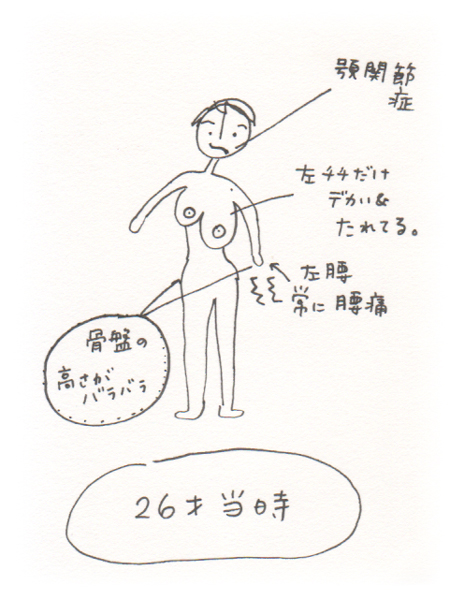 顎関節
症
左チチだけ
デかい&
たれてる。
左腰
常に腰痛
骨盤の
高さが
バラバラ
26才当時